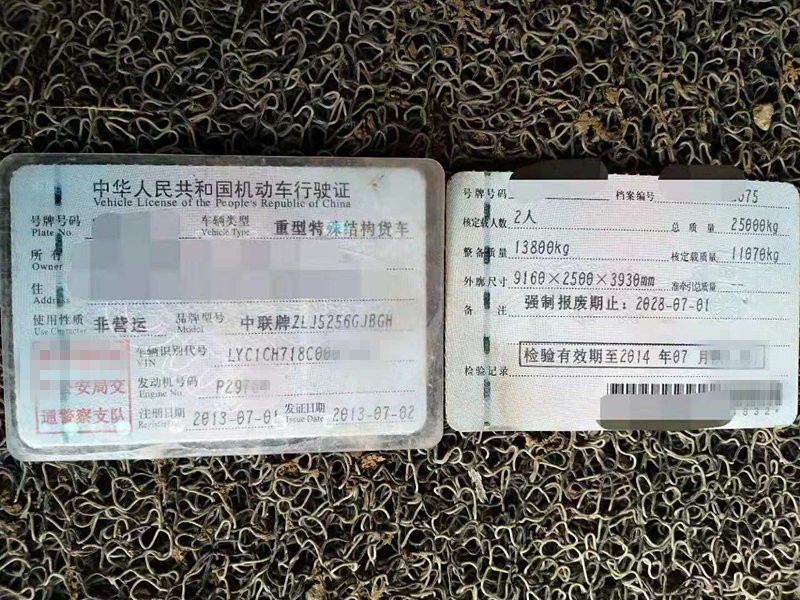 中华人民共和国机动车行驶证
Vehicle License of the People's Republic of China
号牌号码
Plate No.
车辆类型 重型特殊结构货车
Vehicle Type
所有
Owner
住
Address
使用性质 非营运 品牌型号 中联牌ZLJ5256GJBGH
Use Character Model
车辆识别代号 LYC1CH718C00
VIN
安局交
通警察支队
发动机号码 P297
Engine No.
注册日期 2013-07-01 发证日期 2013-07-02
Register Date Issue Date
号牌号码 档案编号 675
核定载人数 2人 总质量 25000kg
整备质量 13800kg 核定载质量 11070kg
外廓尺寸 9160×2500×3930mm 准牵引总质量 --
备注 强制报废期止：2028-07-01
检验有效期至2014 年07 月
检验记录